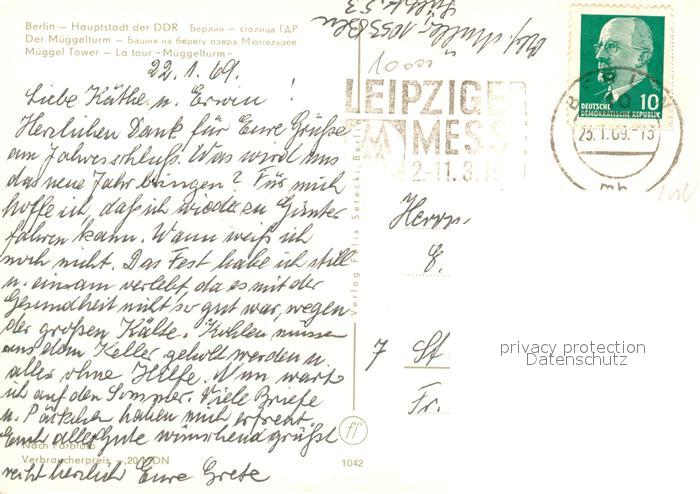 Berlin — Hauptstadt der DDR Берлин — столица ГДР
Der Müggelturm — Башня на берегу озера Мюггельзее
Müggel Tower — La tour „Müggelturm“
22.1.69.
Liebe Käthe u. Erwin!
Herzlichen Dank für Eure Grüße
am Jahresschluß. Was wird uns
das neue Jahr bringen? Für mich
hoffe ich, daß ich wieder zu Günter
fahren kann. Wann weiß ich
noch nicht. Das Fest habe ich still
u. einsam verlebt, da es mit der
Gesundheit nicht so gut war, wegen
der großen Kälte. Kohlen müssen
aus dem Keller geholt werden u.
alles ohne Hilfe. Nun warte
ich auf den Sommer. Viele Briefe
u. Päckchen haben mich erfreut
Euch alles Gute wünschend grüßt
recht herzlich Eure Grete
Nach Farbfoto
Verbraucherpreis —,20 MDN
1042
Verlag Felix Setecki, Berlin
1055 Bln
LEIPZIGER
MESSE
2-11.3.19
BERLIN
23.1.69.-13
mh
DEUTSCHE
DEMOKRATISCHE REPUBLIK
10
Herrn
E.
7 St
Fr.
privacy protection
Datenschutz